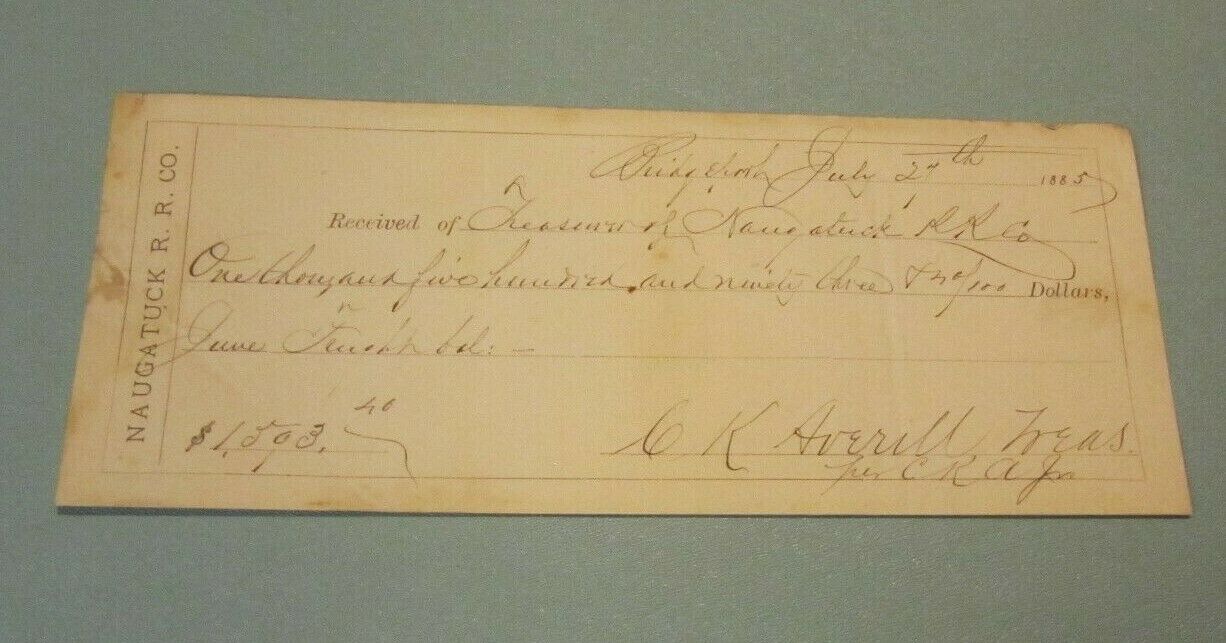 NAUGATUCK R. R. CO.
Bridgeport July 27th 1885
Received of Treasurer of Naugatuck R R Co
One thousand five hundred and ninety three & 40/100 Dollars,
June bal: —
$1,593.40
C K Averill Treas.
per C K A Jr